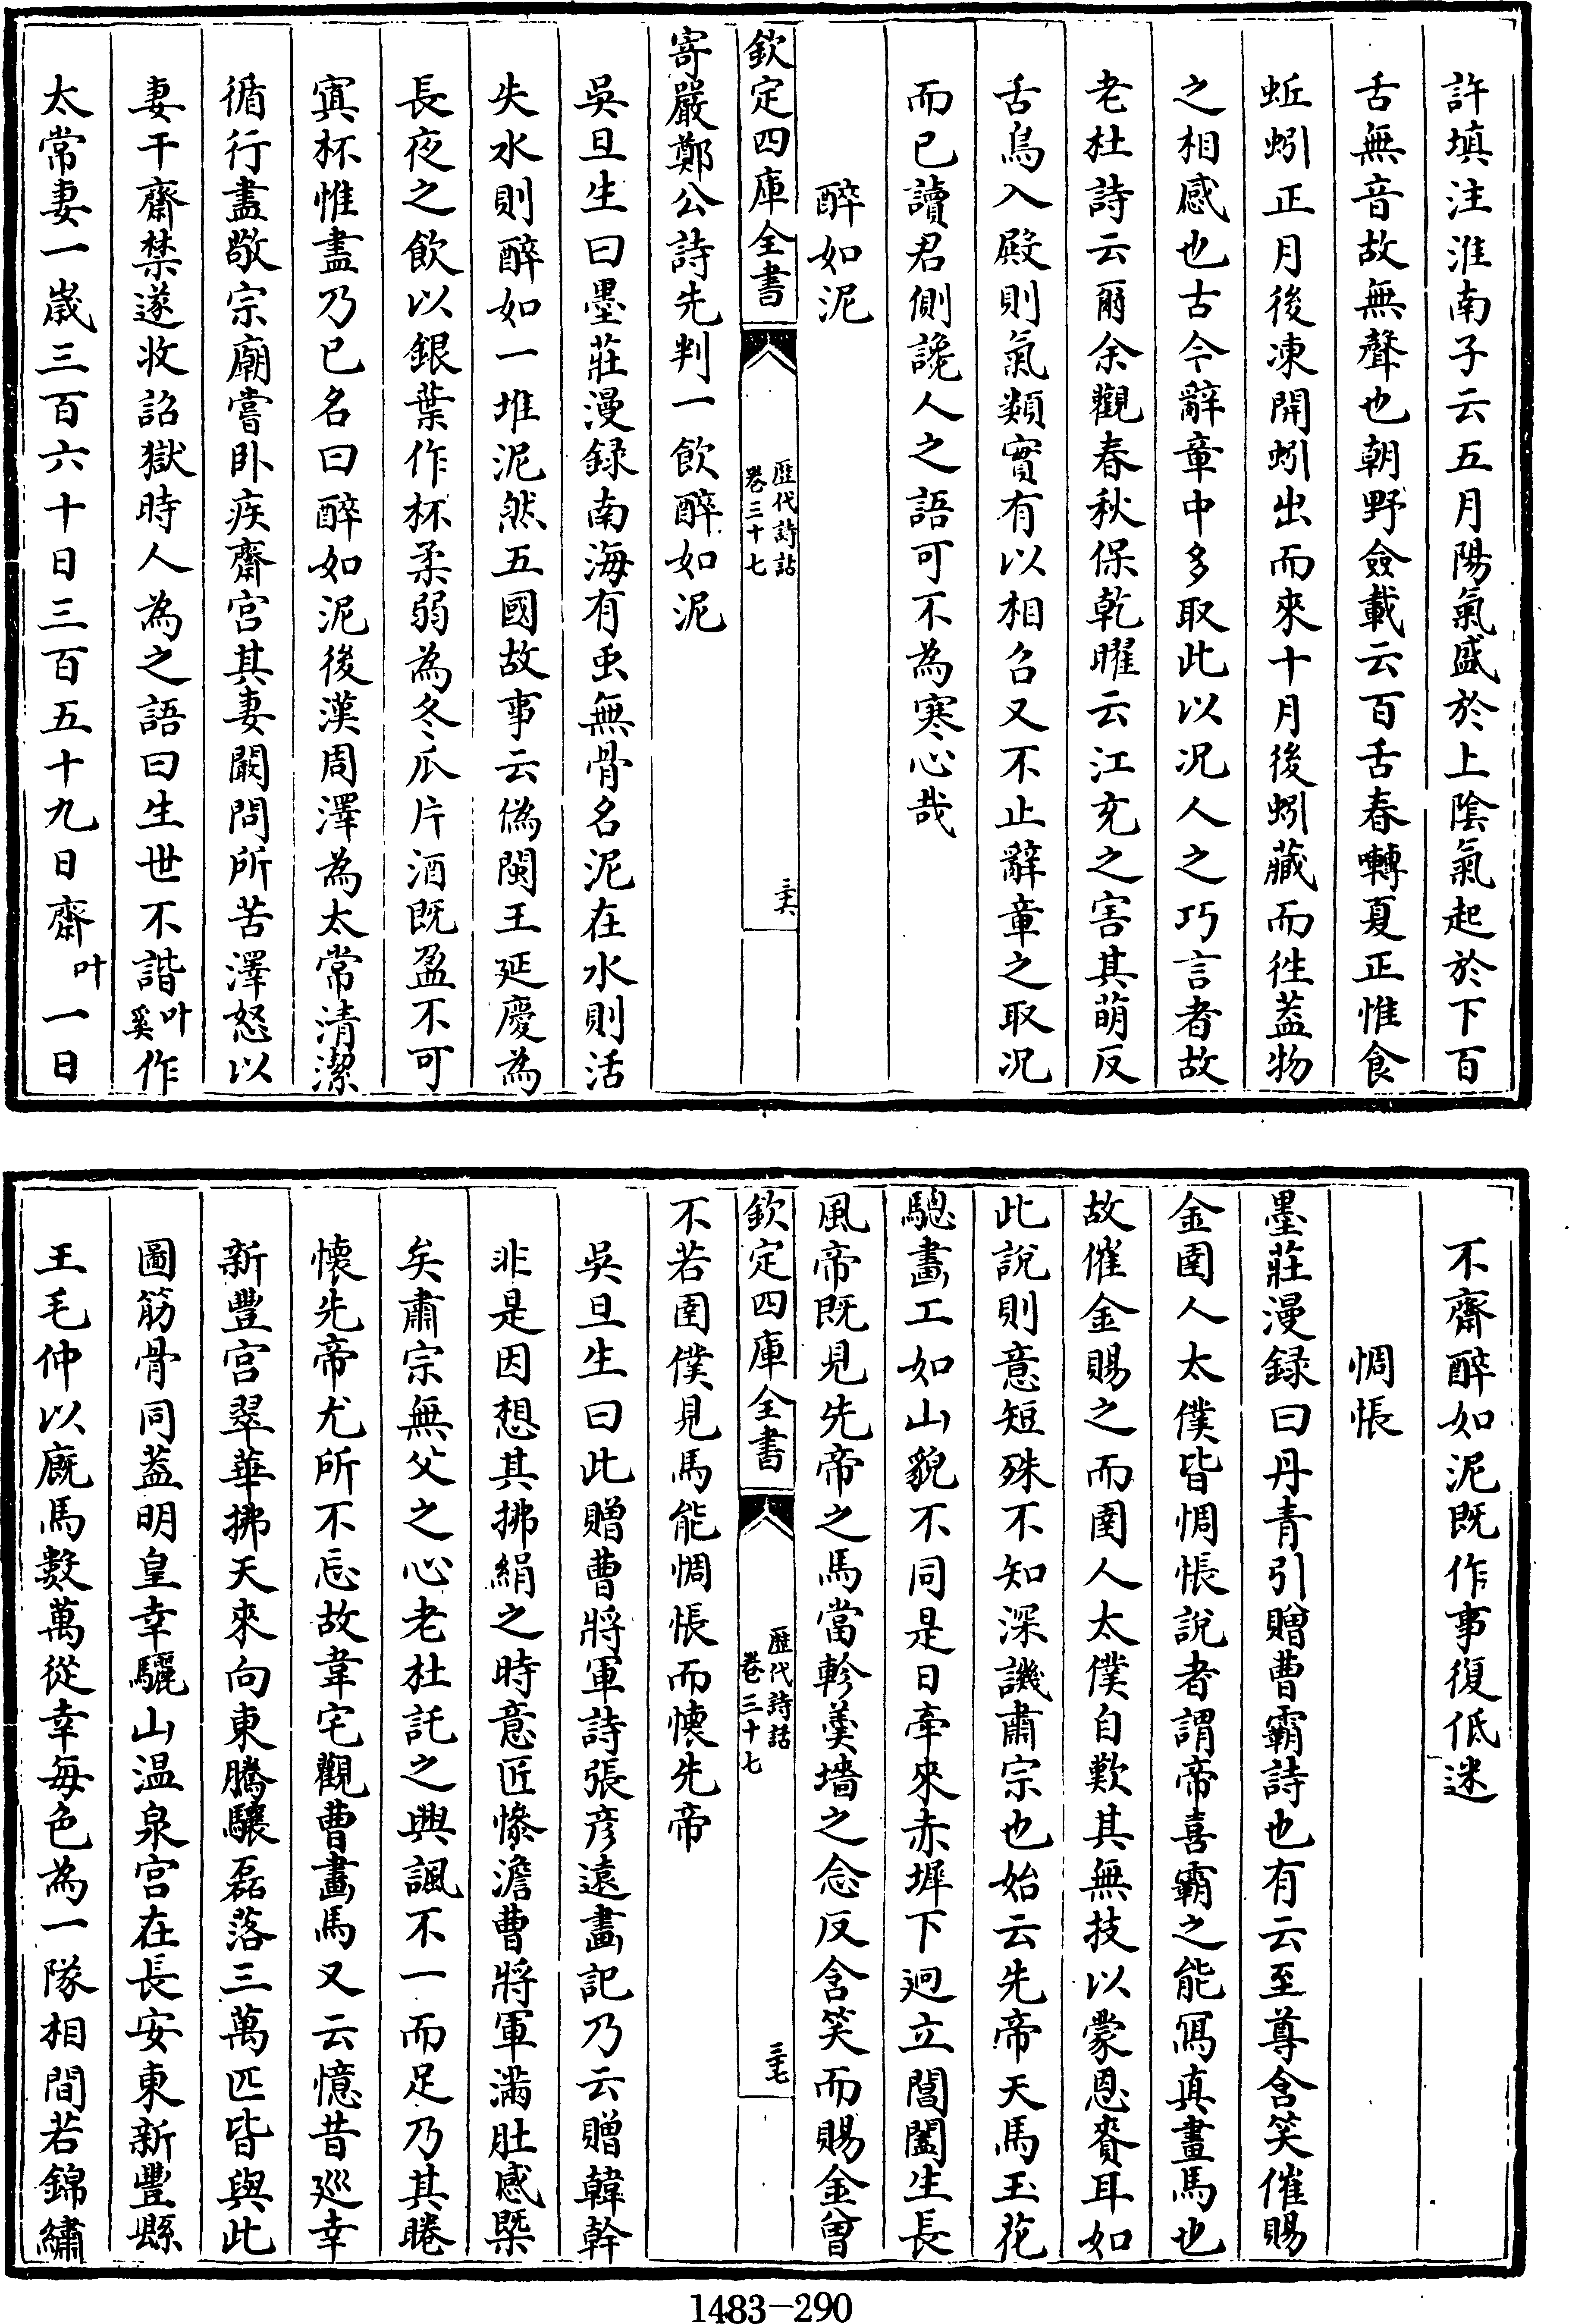 許填注淮南子云五月陽氣盛於上陰氣起於下百
舌無音故無聲也朝野僉載云百舌春囀夏正惟食
蚯蚓正月後凍開蚓出而來十月後蚓藏而徃葢物
之相感也古今辭章中多取此以况人之巧言者故
老杜詩云爾余觀春秋保乾曜云江充之害其萌反
舌鳥入殿則氣類實有以相召又不止辭章之取况
而已讀君側讒人之語可不為寒心哉
醉如泥
欽定四庫全書
歴代詩話
卷三十七
三六
寄嚴鄭公詩先判一飲醉如泥
吳旦生曰墨莊漫録南海有䖝無骨名泥在水則活
失水則醉如一堆泥然五國故事云偽閩王延慶為
長夜之飲以銀葉作杯柔弱為冬瓜片酒既盈不可
寘杯惟盡乃已名曰醉如泥後漢周澤為太常清潔
循行盡敬宗廟嘗卧疾齋宫其妻闚問所苦澤怒以
妻干齋禁遂收詔獄時人為之語曰生世不諧叶奚作
太常妻一歲三百六十日三百五十九日齋叶一日
不齋醉如泥既作事復低迷
惆悵
墨莊漫録曰丹青引贈曹霸詩也有云至尊含笑催賜
金圉人太僕皆惆悵說者謂帝喜霸之能冩真畫馬也
故催金賜之而圉人太僕自歎其無技以蒙恩賚耳如
此說則意短殊不知深譏肅宗也始云先帝天馬玉花
驄畫工如山貌不同是日牽來赤墀下迥立閶闔生長
風帝既見先帝之馬當軫羮墻之念反含笑而賜金曽
欽定四庫全書
歴代詩話
卷三十七
三七
不若圉僕見馬能惆悵而懐先帝
吳旦生曰此贈曹將軍詩張彦遠畫記乃云贈韓幹
非是因想其拂絹之時意匠慘澹曹將軍滿肚感槩
矣肅宗無父之心老杜託之興諷不一而足乃其睠
懐先帝尤所不忘故韋宅觀曹畫馬又云憶昔巡幸
新豐宫翠華拂天來向東騰驤磊落三萬匹皆與此
圖筋骨同葢明皇幸驪山温泉宫在長安東新豐縣
王毛仲以廐馬數萬從幸每色為一隊相間若錦繡
1483-290